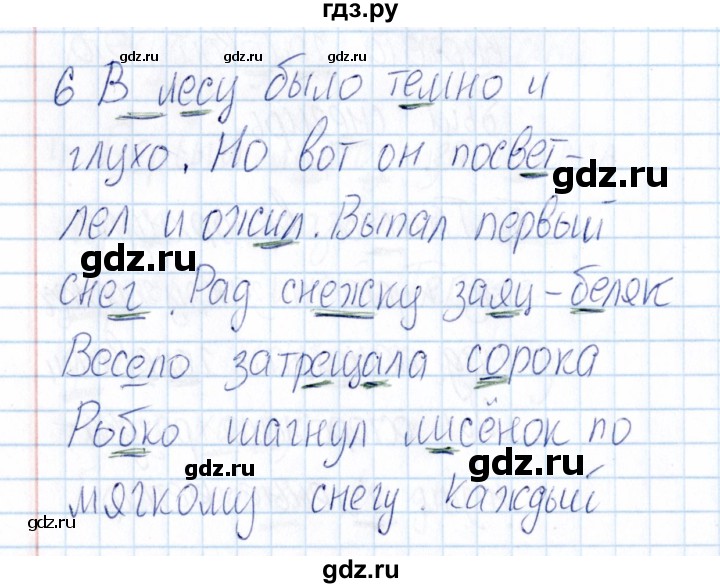 гдз.ру
gdz.ru gdz.ru gdz.ru
6 В лесу было темно и
глухо. Но вот он посвет-
gdz.ru
лел и ожил. Выпал первый
gdz.ru
снег. Рад снежку заяц-беляк
gdz.ru gdz.ru
Весело затрещала сорока
Рыбко шагнул лисёнок по
gdz.ru gdz.ru
мягкому снегу. Каждый
gdz.ru gdz.ru
gdz.ru